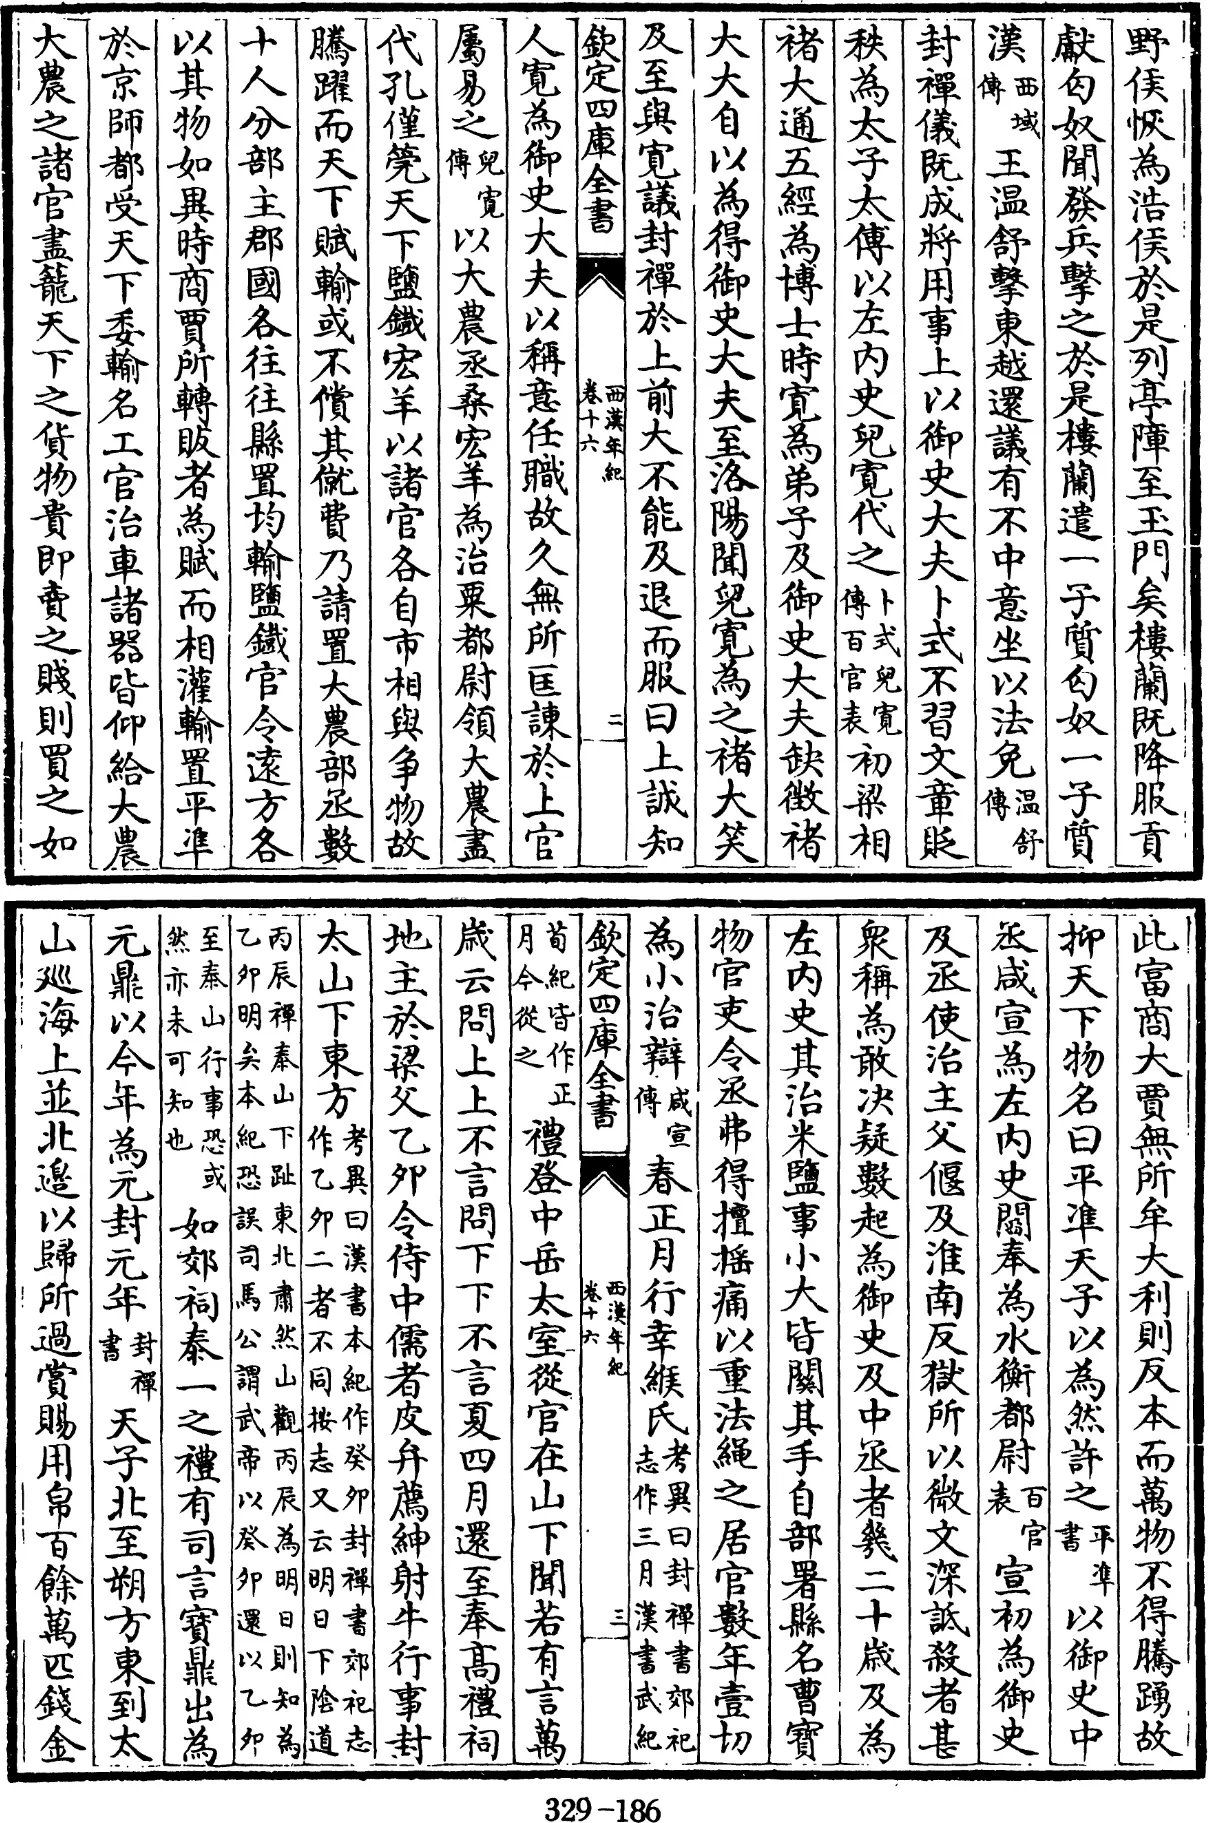 野侯恢為浩侯於是列亭障至玉門矣樓蘭既降服貢
獻匈奴聞發兵擊之於是樓蘭遣一子質匈奴一子質
漢西域傳王温舒擊東越還議有不中意坐以法免温舒傳
封禪儀既成將用事上以御史大夫卜式不習文章貶
秩為太子太傅以左内史兒寛代之卜式兒寛傳百官表初梁相
褚大通五經為博士時寛為弟子及御史大夫缺徴褚
大大自以為得御史大夫至洛陽聞兒寛為之褚大笑
及至與寛議封禪於上前大不能及退而服曰上誠知
欽定四庫全書 西漢年紀卷十六 二
人寛為御史大夫以稱意任職故久無所匡諫於上官
屬易之兒寛傳以大農丞桑宏羊為治粟都尉領大農盡
代孔僅筦天下鹽鐵宏羊以諸官各自市相與爭物故
騰躍而天下賦輸或不償其僦費乃請置大農部丞數
十人分部主郡國各往往縣置均輸鹽鐵官令逺方各
以其物如異時商賈所轉販者為賦而相灌輸置平準
於京師都受天下委輸名工官治車諸器皆仰給大農
大農之諸官盡籠天下之貨物貴即賣之賤則買之如
此富商大賈無所牟大利則反本而萬物不得騰踴故
抑天下物名曰平準天子以為然許之平準書以御史中
丞咸宣為左内史閻奉為水衡都尉百官表宣初為御史
及丞使治主父偃及淮南反獄所以微文深詆殺者甚
衆稱為敢决疑數起為御史及中丞者幾二十歲及為
左内史其治米鹽事小大皆關其手自部署縣名曹寳
物官吏令丞弗得擅摇痛以重法繩之居官數年壹切
為小治辯咸宣傳春正月行幸緱氏考異曰封禪書郊祀志作三月漢書武紀
欽定四庫全書 西漢年紀卷十六 三
荀紀皆作正月今從之禮登中岳太室從官在山下聞若有言萬
歲云問上上不言問下下不言夏四月還至奉高禮祠
地主於梁父乙夘令侍中儒者皮弁薦紳射牛行事封
太山下東方考異曰漢書本紀作癸夘封禪書郊祀志作乙夘二者不同按志又云明日下陰道
丙辰禪泰山下阯東北肅然山觀丙辰為明日則知為乙夘明矣本紀恐誤司馬公謂武帝以癸夘還以乙夘
至泰山行事恐或然亦未可知也如郊祠泰一之禮有司言寳鼎出為
元鼎以今年為元封元年封禪書天子北至朔方東到太
山廵海上並北邉以歸所過賞賜用帛百餘萬匹錢金
329-186